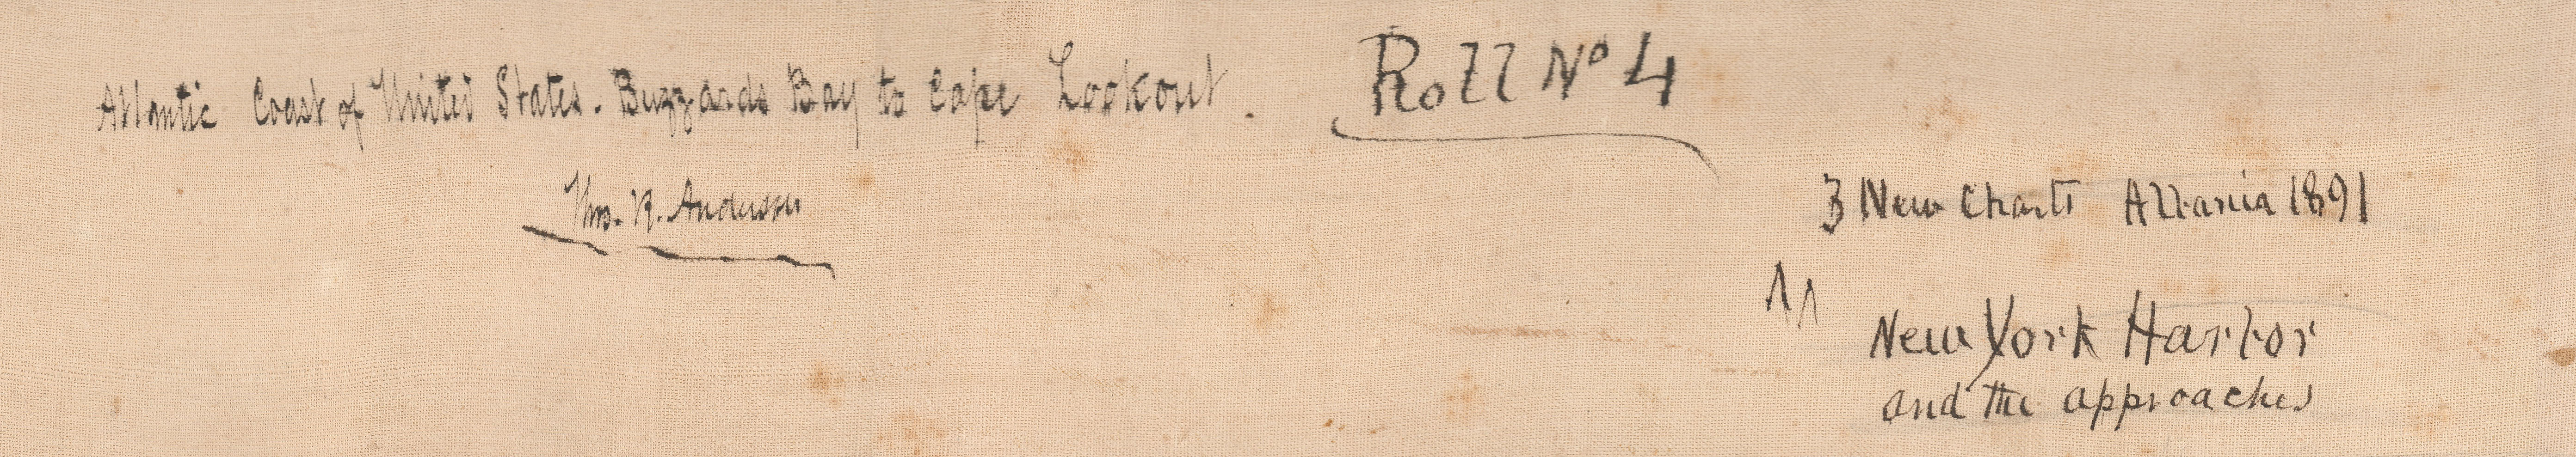 Atlantic Coast of United States. Buzzards Bay to Cape Lookout. Roll Nº 4
Thos. R. Anderson
3 New Charts 1891
New York Harbor
and the approaches